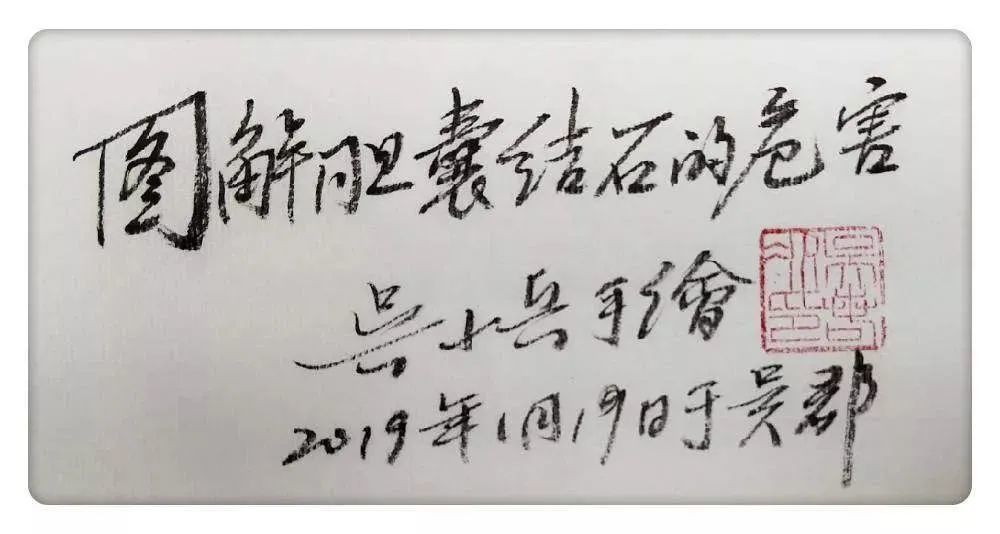 图解胆囊结石的危害
吴小兵手繪
2019年1月19日于吴郡